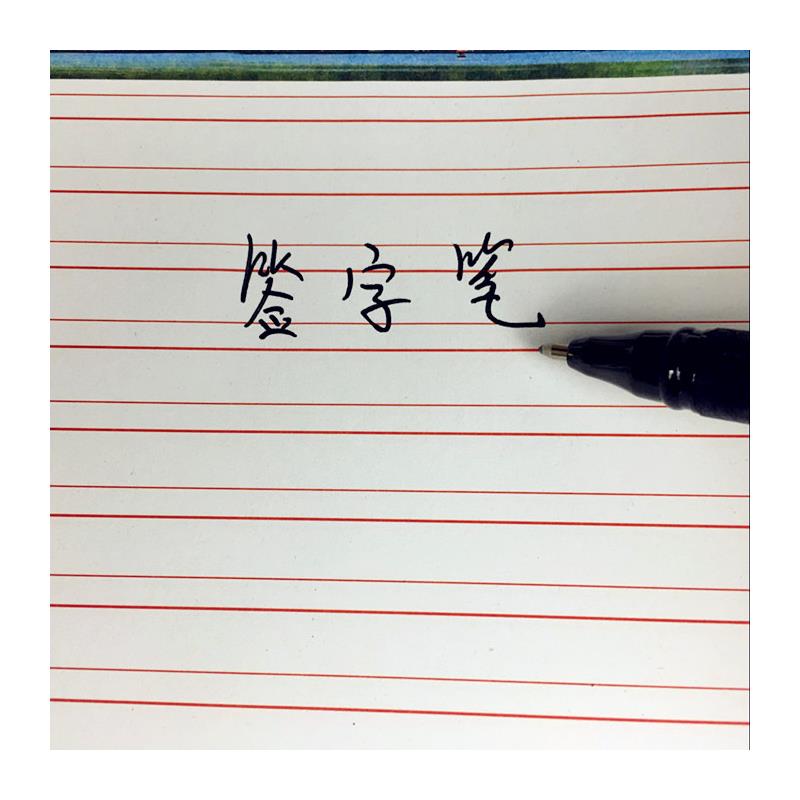 签字笔